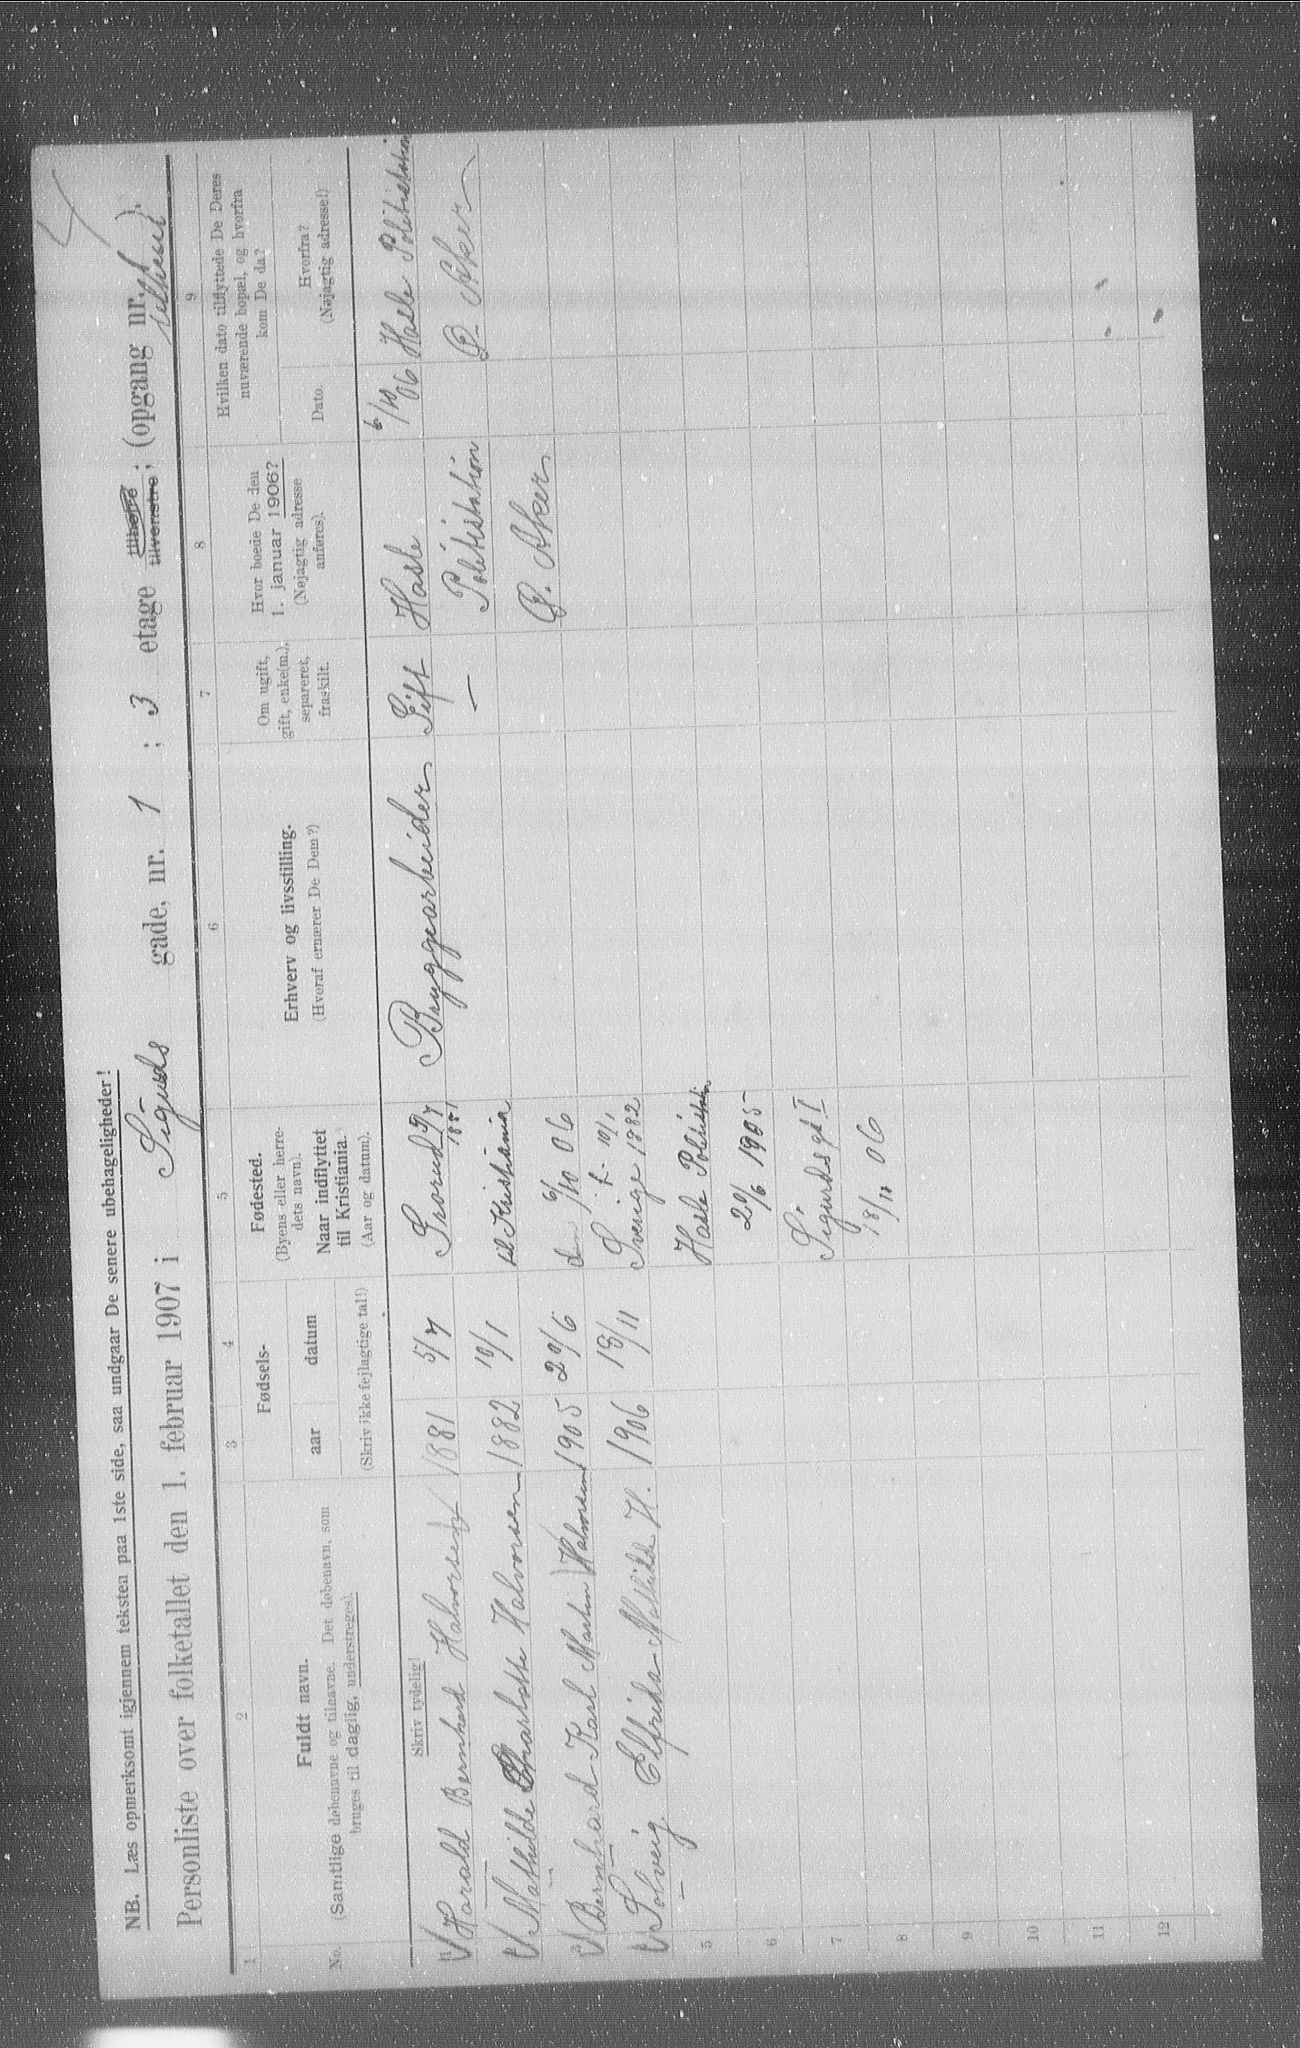 NB. Læs opmerksomt igjennem teksten paa 1ste side, saa undgaar De senere ubehageligheder!
Personliste over folketallet den 1. februar 1907 i Sigurds gade, nr. 1 ; 3 etage tilhøire tilvenstre; (opgang nr. ).
1 2 3 4 5 6 7 8 9
No.
Fuldt navn.
(Samtlige døbenavne og tilnavne. Det døbenavn, som
bruges til daglig, understreges).
Fødsels-
aar datum
(Skriv ikke fejlagtige tal!)
Fødested.
(Byens eller herre-
dets navn).
Naar indflyttet
til Kristiania.
(Aar og datum).
Erhverv og livsstilling.
(Hvoraf ernærer De Dem?)
Om ugift,
gift, enke(m.),
separeret,
fraskilt.
Hvor boede De den
1. januar 1906?
(Nøjagtig adresse
anføres).
Hvilken dato tilflyttede De Deres
nuværende bopæl, og hvorfra
kom De da?
Dato.
Hvorfra?
(Nøjagtig adresse!)
Skriv tydelig!
Harald Bernhard Halvorsen 1881 5/7 Grorud 5/7 1881 Bryggearbeider Gift Hasle 6/10 06 Hasle Politistation
Mathilde Charlotte Halvorsen 1882 10/1 til Kristiania — Politistation Ø. Aker
Bernhard Karl Martin Halvorsen 1905 29/6 den 6/10 06 Ø. Aker
Solveig Elfrida Mathilde H. 1906 18/11 Sverige f. 10/1 1882
5 Hasle Politistation
6 29/6 1905
7 Sigurds gd I
8 18/11 06
9
10
11
12